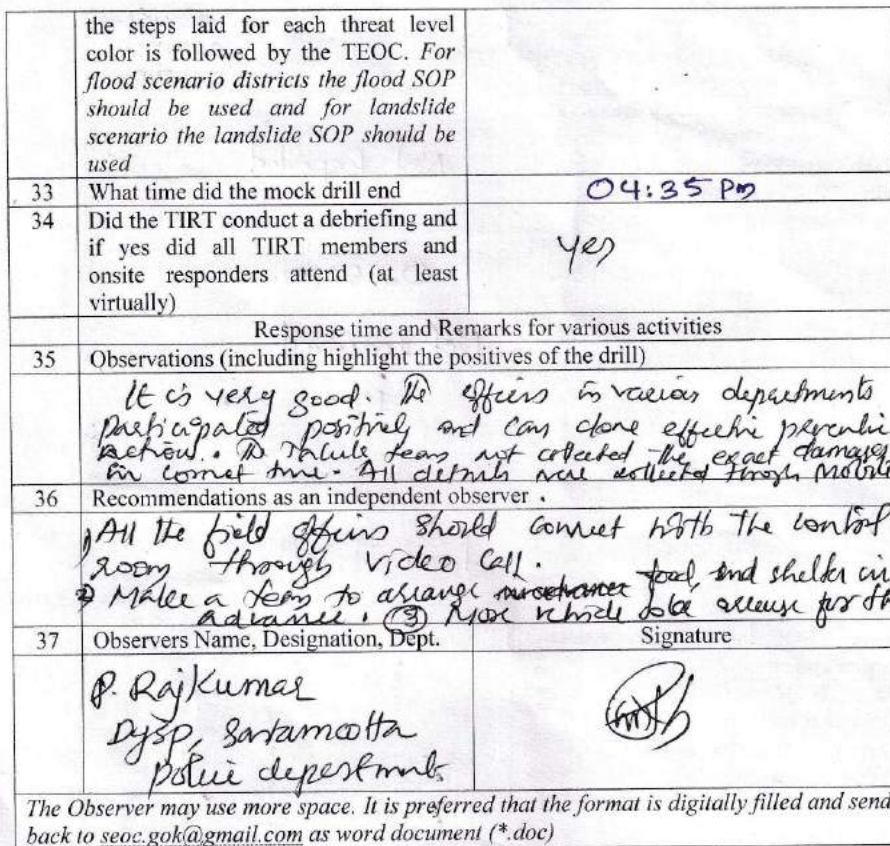 the steps laid for each threat level
color is followed by the TEOC. For
flood scenario districts the flood SOP
should be used and for landslide
scenario the landslide SOP should be
used
33 What time did the mock drill end 04:35 Pm
34 Did the TIRT conduct a debriefing and
if yes did all TIRT members and
onsite responders attend (at least
virtually)
yes
Response time and Remarks for various activities
35 Observations (including highlight the positives of the drill)
It is very good. The officers in various departments
participated positively and can done effective
action. The team not collected the exact damages
in correct time. All details were collected through Mobile
36 Recommendations as an independent observer .
1) All the field officers should connect with the control
room through video call.
2) Make a team to arrange food, and shelter in
advance. (3) More vehicle to be arrange for th
37 Observers Name, Designation, Dept. Signature
P. Rajkumar
Dysp,
police department
The Observer may use more space. It is preferred that the format is digitally filled and send
back to seoc.gok@gmail.com as word document (*.doc)